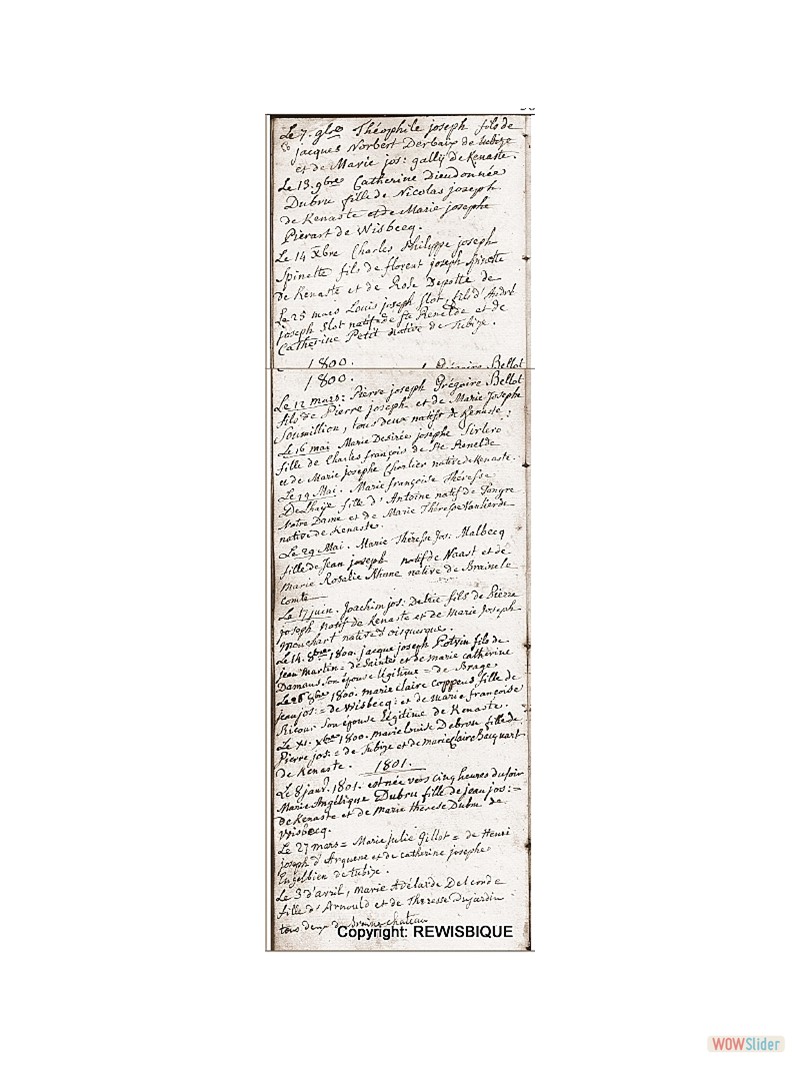 Le 7. 9bre Théophile joseph fils de
jacques Norbert Derbaix de tubize
et de Marie jos: gallij de Kenaste.
Le 13. 9bre Catherine Dieudonnée
Dubru fille de Nicolas joseph
de Kenaste et de Marie josephe
Pierart de Wisbecq.
Le 14 Xbre Charles Philippe joseph
Spinette fils de florent joseph Spinette
de Kenaste et de Rose Depotte de
Le 25 mars Louis joseph Slot, fils d'André
joseph Slot natif de Ste Renelde et de
Catherine Petit native de Tubize.
1800.
Grégoire Bellot
1800.
Le 12 mars: Pierre joseph Grégoire Bellot
fils de Pierre joseph et de Marie Josephe
Soumillion, tous deux natifs de Kenaste:
Le 16 mai Marie Desirée josephe
fille de Charles françois de Ste Renelde
et de Marie josephe Charlier native de Kenaste.
Le 19 Mai. Marie françoise Theresse
Delhaije fille d'Antoine natif de Tongre
Notre Dame et de Marie Theresse
native de Kenaste.
Le 29 Mai. Marie Therese Jos: Malbecq
fille de Jean joseph natif de Naast et de
Marie Rosalie native de Braine le
comte
Le 17 juin. Joachim jos: fils de Pierre
joseph natif de Kenaste et de Marie Joseph
Mouchart native d'oisquerque.
Le 14. 8bre 1800. jacque joseph Potvin fils de
jean Martin = de Saintes et de marie catherine
Damaus son épouse légitime = de Brage
Le 26 8bre 1800. marie claire coppens fille de
jean jos: = de Wisbecq: et de marie françoise
Ricour son épouse légitime de Kenaste.
Le XI. Xbre 1800. marie louise Debrou fille de
Pierre jos: = de Tubize et de marie claire Bacquart
de Kenaste.
1801.
Le 8 janv. 1801. est née vers cinq heures du soir
Marie Angélique Dubru fille de jean jos: =
de Kenaste et de marie thérese Dubru de
Wisbecq.
Le 27 mars = Marie julie Gillot = de Henri
joseph d'Arquene et de catherine josephe
Engelbien de tubize.
Le 3 d'avril, marie Adélaide Delcorde
fille d'Arnould et de Theresse Dujardin
tous deux de braine chateau
Copyright: REWISBIQUE
WOWSlider